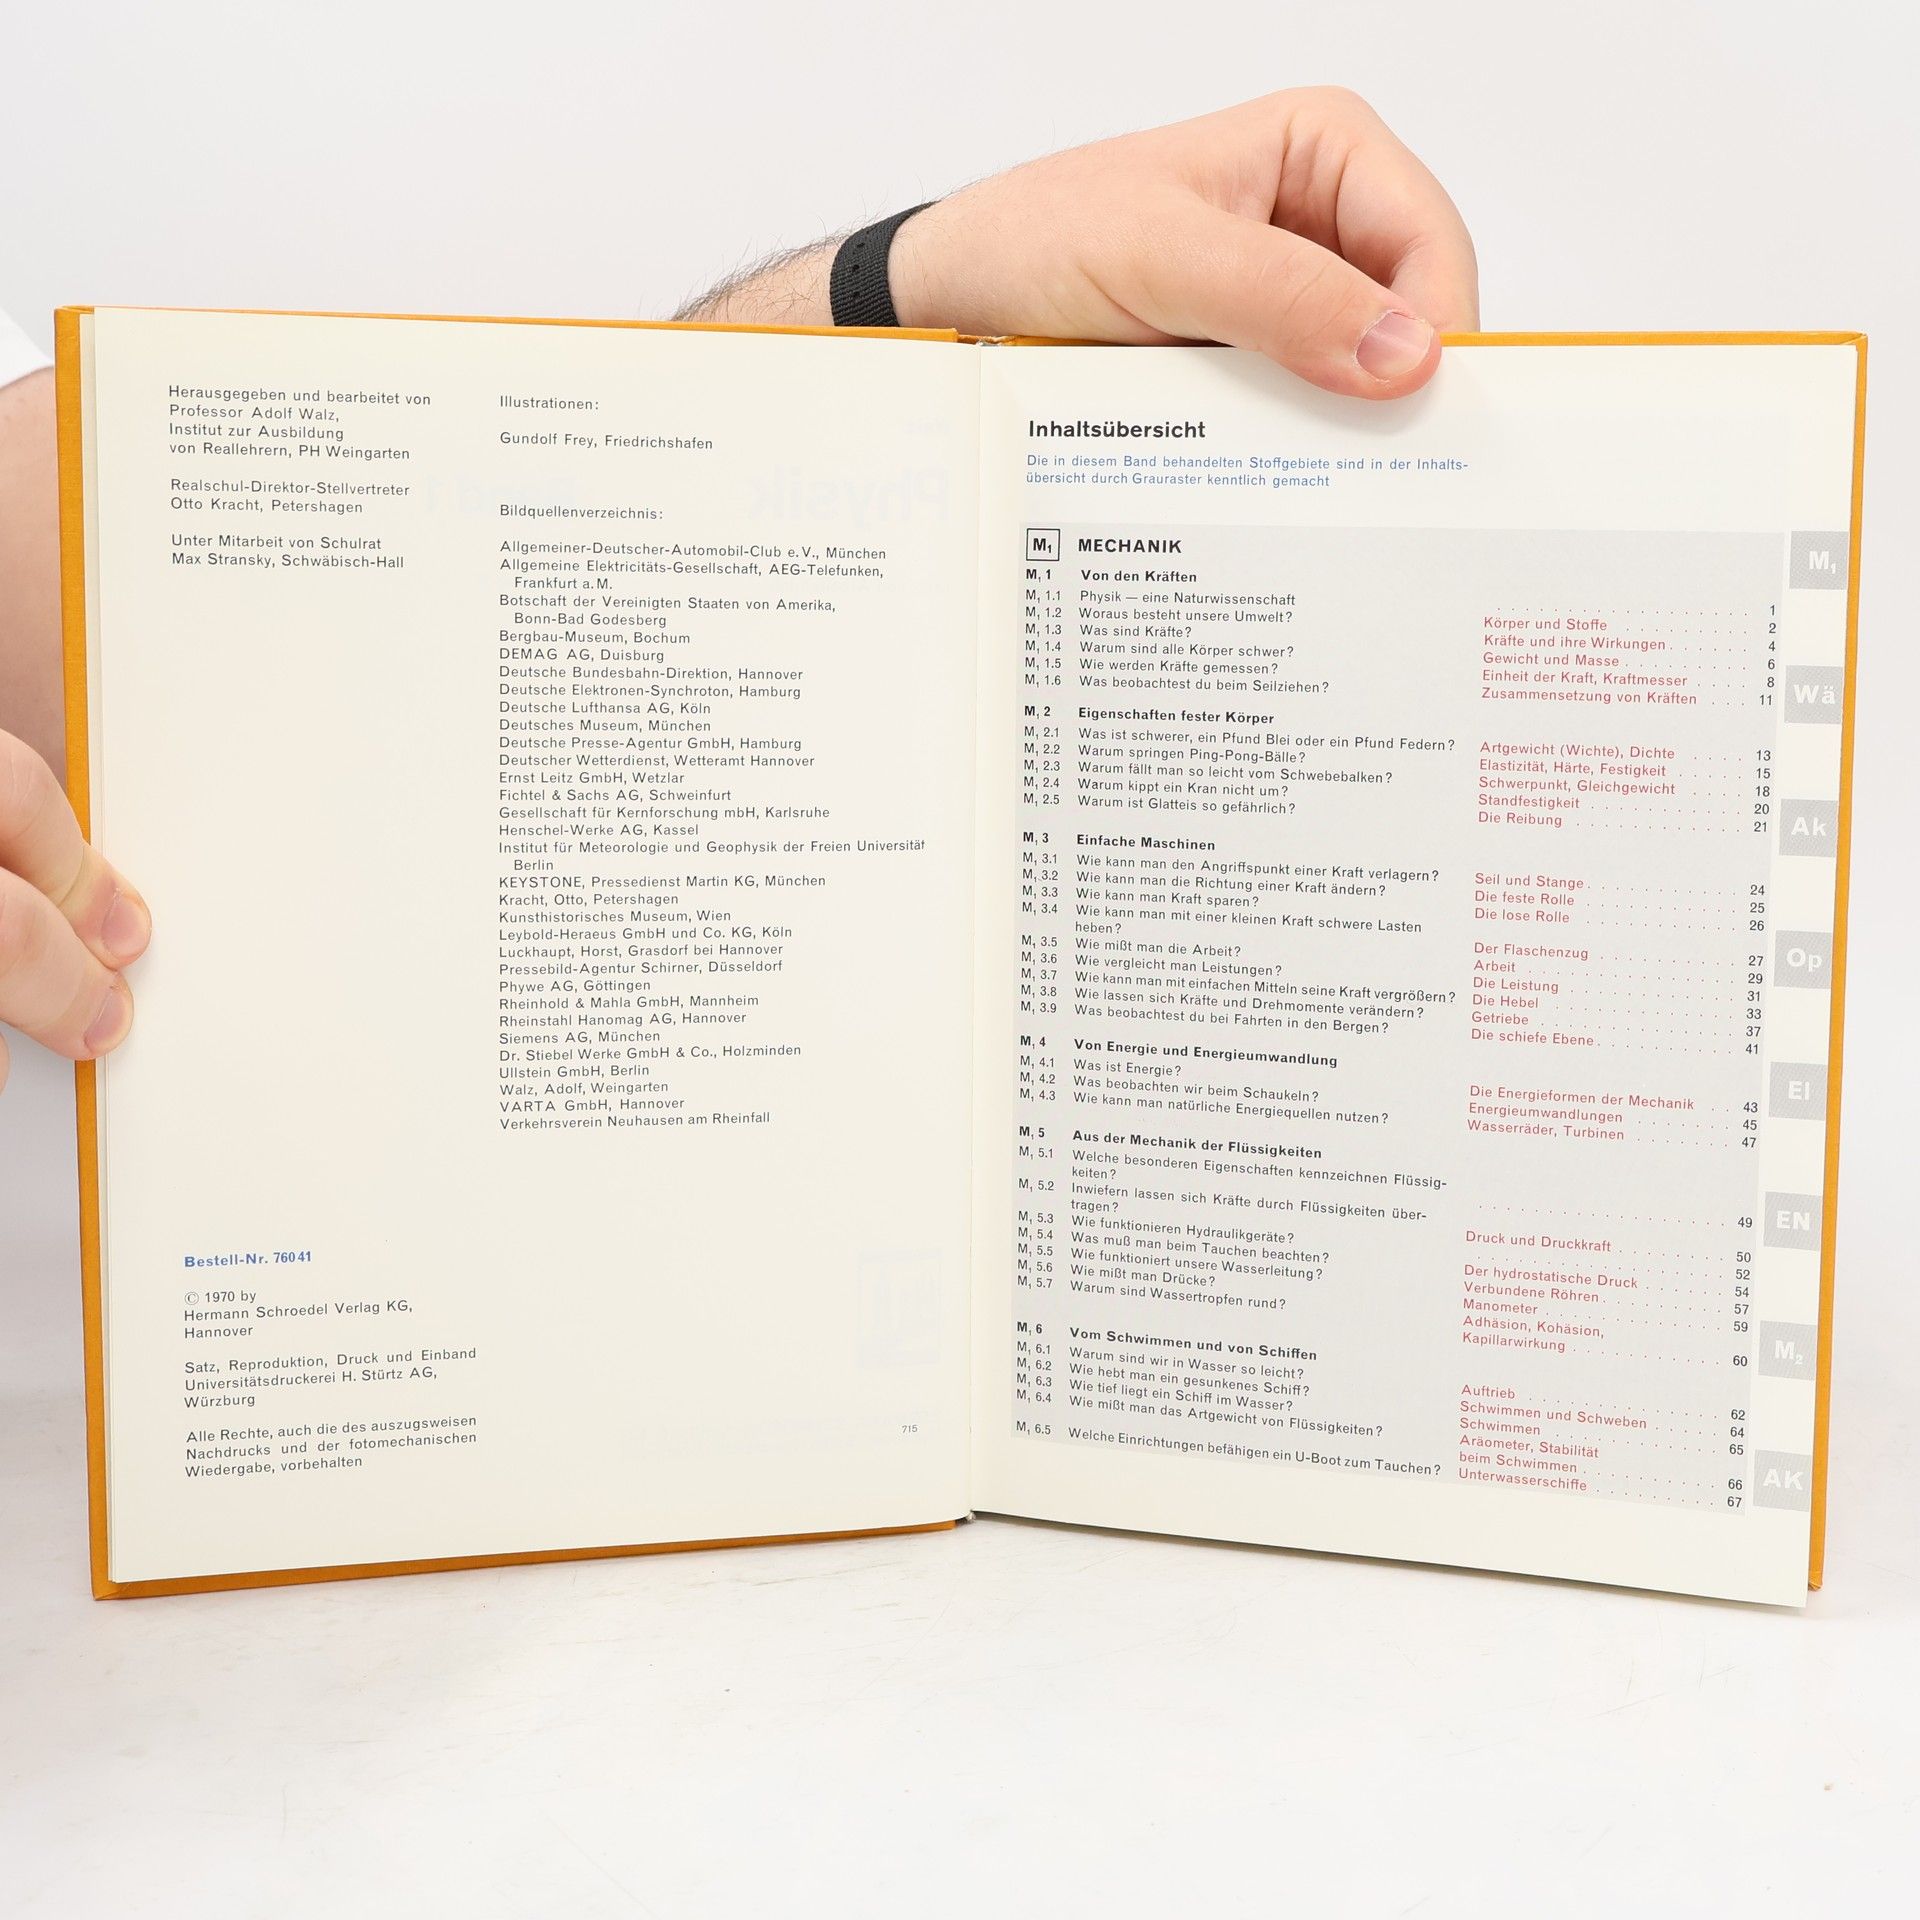 Herausgegeben und bearbeitet von
Professor Adolf Walz,
Institut zur Ausbildung
von Reallehrern, PH Weingarten
Realschul-Direktor-Stellvertreter
Otto Kracht, Petershagen
Unter Mitarbeit von Schulrat
Max Stransky, Schwäbisch-Hall
Bestell-Nr. 76041
© 1970 by
Hermann Schroedel Verlag KG,
Hannover
Satz, Reproduktion, Druck und Einband
Universitätsdruckerei H. Stürtz AG,
Würzburg
Alle Rechte, auch die des auszugsweisen
Nachdrucks und der fotomechanischen
Wiedergabe, vorbehalten
Illustrationen:
Gundolf Frey, Friedrichshafen
Bildquellenverzeichnis:
Allgemeiner-Deutscher-Automobil-Club e.V., München
Allgemeine Elektricitäts-Gesellschaft, AEG-Telefunken,
Frankfurt a.M.
Botschaft der Vereinigten Staaten von Amerika,
Bonn-Bad Godesberg
Bergbau-Museum, Bochum
DEMAG AG, Duisburg
Deutsche Bundesbahn-Direktion, Hannover
Deutsche Elektronen-Synchroton, Hamburg
Deutsche Lufthansa AG, Köln
Deutsches Museum, München
Deutsche Presse-Agentur GmbH, Hamburg
Deutscher Wetterdienst, Wetteramt Hannover
Ernst Leitz GmbH, Wetzlar
Fichtel & Sachs AG, Schweinfurt
Gesellschaft für Kernforschung mbH, Karlsruhe
Henschel-Werke AG, Kassel
Institut für Meteorologie und Geophysik der Freien Universität
Berlin
KEYSTONE, Pressedienst Martin KG, München
Kracht, Otto, Petershagen
Kunsthistorisches Museum, Wien
Leybold-Heraeus GmbH und Co. KG, Köln
Luckhaupt, Horst, Grasdorf bei Hannover
Pressebild-Agentur Schirner, Düsseldorf
Phywe AG, Göttingen
Rheinhold & Mahla GmbH, Mannheim
Rheinstahl Hanomag AG, Hannover
Siemens AG, München
Dr. Stiebel Werke GmbH & Co., Holzminden
Ullstein GmbH, Berlin
Walz, Adolf, Weingarten
VARTA GmbH, Hannover
Verkehrsverein Neuhausen am Rheinfall
715
Inhaltsübersicht
Die in diesem Band behandelten Stoffgebiete sind in der Inhalts-
übersicht durch Grauraster kenntlich gemacht
M₁ MECHANIK
M₁ 1 Von den Kräften
M₁ 1.1 Physik — eine Naturwissenschaft . . . . . 1
M₁ 1.2 Woraus besteht unsere Umwelt? Körper und Stoffe . . . . . 2
M₁ 1.3 Was sind Kräfte? Kräfte und ihre Wirkungen . . . . . 4
M₁ 1.4 Warum sind alle Körper schwer? Gewicht und Masse . . . . . 6
M₁ 1.5 Wie werden Kräfte gemessen? Einheit der Kraft, Kraftmesser . . . . 8
M₁ 1.6 Was beobachtest du beim Seilziehen? Zusammensetzung von Kräften . . . 11
M₁ 2 Eigenschaften fester Körper
M₁ 2.1 Was ist schwerer, ein Pfund Blei oder ein Pfund Federn? Artgewicht (Wichte), Dichte . . . . 13
M₁ 2.2 Warum springen Ping-Pong-Bälle? Elastizität, Härte, Festigkeit . . . . . 15
M₁ 2.3 Warum fällt man so leicht vom Schwebebalken? Schwerpunkt, Gleichgewicht . . . . 18
M₁ 2.4 Warum kippt ein Kran nicht um? Standfestigkeit . . . . . 20
M₁ 2.5 Warum ist Glatteis so gefährlich? Die Reibung . . . . . 21
M₁ 3 Einfache Maschinen
M₁ 3.1 Wie kann man den Angriffspunkt einer Kraft verlagern? Seil und Stange . . . . . 24
M₁ 3.2 Wie kann man die Richtung einer Kraft ändern? Die feste Rolle . . . . . 25
M₁ 3.3 Wie kann man Kraft sparen? Die lose Rolle . . . . . 26
M₁ 3.4 Wie kann man mit einer kleinen Kraft schwere Lasten
heben? Der Flaschenzug . . . . . 27
M₁ 3.5 Wie mißt man die Arbeit? Arbeit . . . . . 29
M₁ 3.6 Wie vergleicht man Leistungen? Die Leistung . . . . . 31
M₁ 3.7 Wie kann man mit einfachen Mitteln seine Kraft vergrößern? Die Hebel . . . . . 33
M₁ 3.8 Wie lassen sich Kräfte und Drehmomente verändern? Getriebe . . . . . 37
M₁ 3.9 Was beobachtest du bei Fahrten in den Bergen? Die schiefe Ebene . . . . . 41
M₁ 4 Von Energie und Energieumwandlung
M₁ 4.1 Was ist Energie? Die Energieformen der Mechanik . . 43
M₁ 4.2 Was beobachten wir beim Schaukeln? Energieumwandlungen . . . . . 45
M₁ 4.3 Wie kann man natürliche Energiequellen nutzen? Wasserräder, Turbinen . . . . . 47
M₁ 5 Aus der Mechanik der Flüssigkeiten
M₁ 5.1 Welche besonderen Eigenschaften kennzeichnen Flüssig-
keiten? . . . . . 49
M₁ 5.2 Inwiefern lassen sich Kräfte durch Flüssigkeiten über-
tragen? Druck und Druckkraft . . . . . 50
M₁ 5.3 Wie funktionieren Hydraulikgeräte? . . . . . 52
M₁ 5.4 Was muß man beim Tauchen beachten? Der hydrostatische Druck . . . . . 54
M₁ 5.5 Wie funktioniert unsere Wasserleitung? Verbundene Röhren . . . . . 57
M₁ 5.6 Wie mißt man Drücke? Manometer . . . . . 59
M₁ 5.7 Warum sind Wassertropfen rund? Adhäsion, Kohäsion,
Kapillarwirkung . . . . . 60
M₁ 6 Vom Schwimmen und von Schiffen
M₁ 6.1 Warum sind wir in Wasser so leicht? Auftrieb . . . . . 62
M₁ 6.2 Wie hebt man ein gesunkenes Schiff? Schwimmen und Schweben . . . . . 64
M₁ 6.3 Wie tief liegt ein Schiff im Wasser? Schwimmen . . . . . 65
M₁ 6.4 Wie mißt man das Artgewicht von Flüssigkeiten? Aräometer, Stabilität
beim Schwimmen . . . . . 66
M₁ 6.5 Welche Einrichtungen befähigen ein U-Boot zum Tauchen? Unterwasserschiffe . . . . . 67
M₁
Wä
Ak
Op
El
EN
M₂
AK